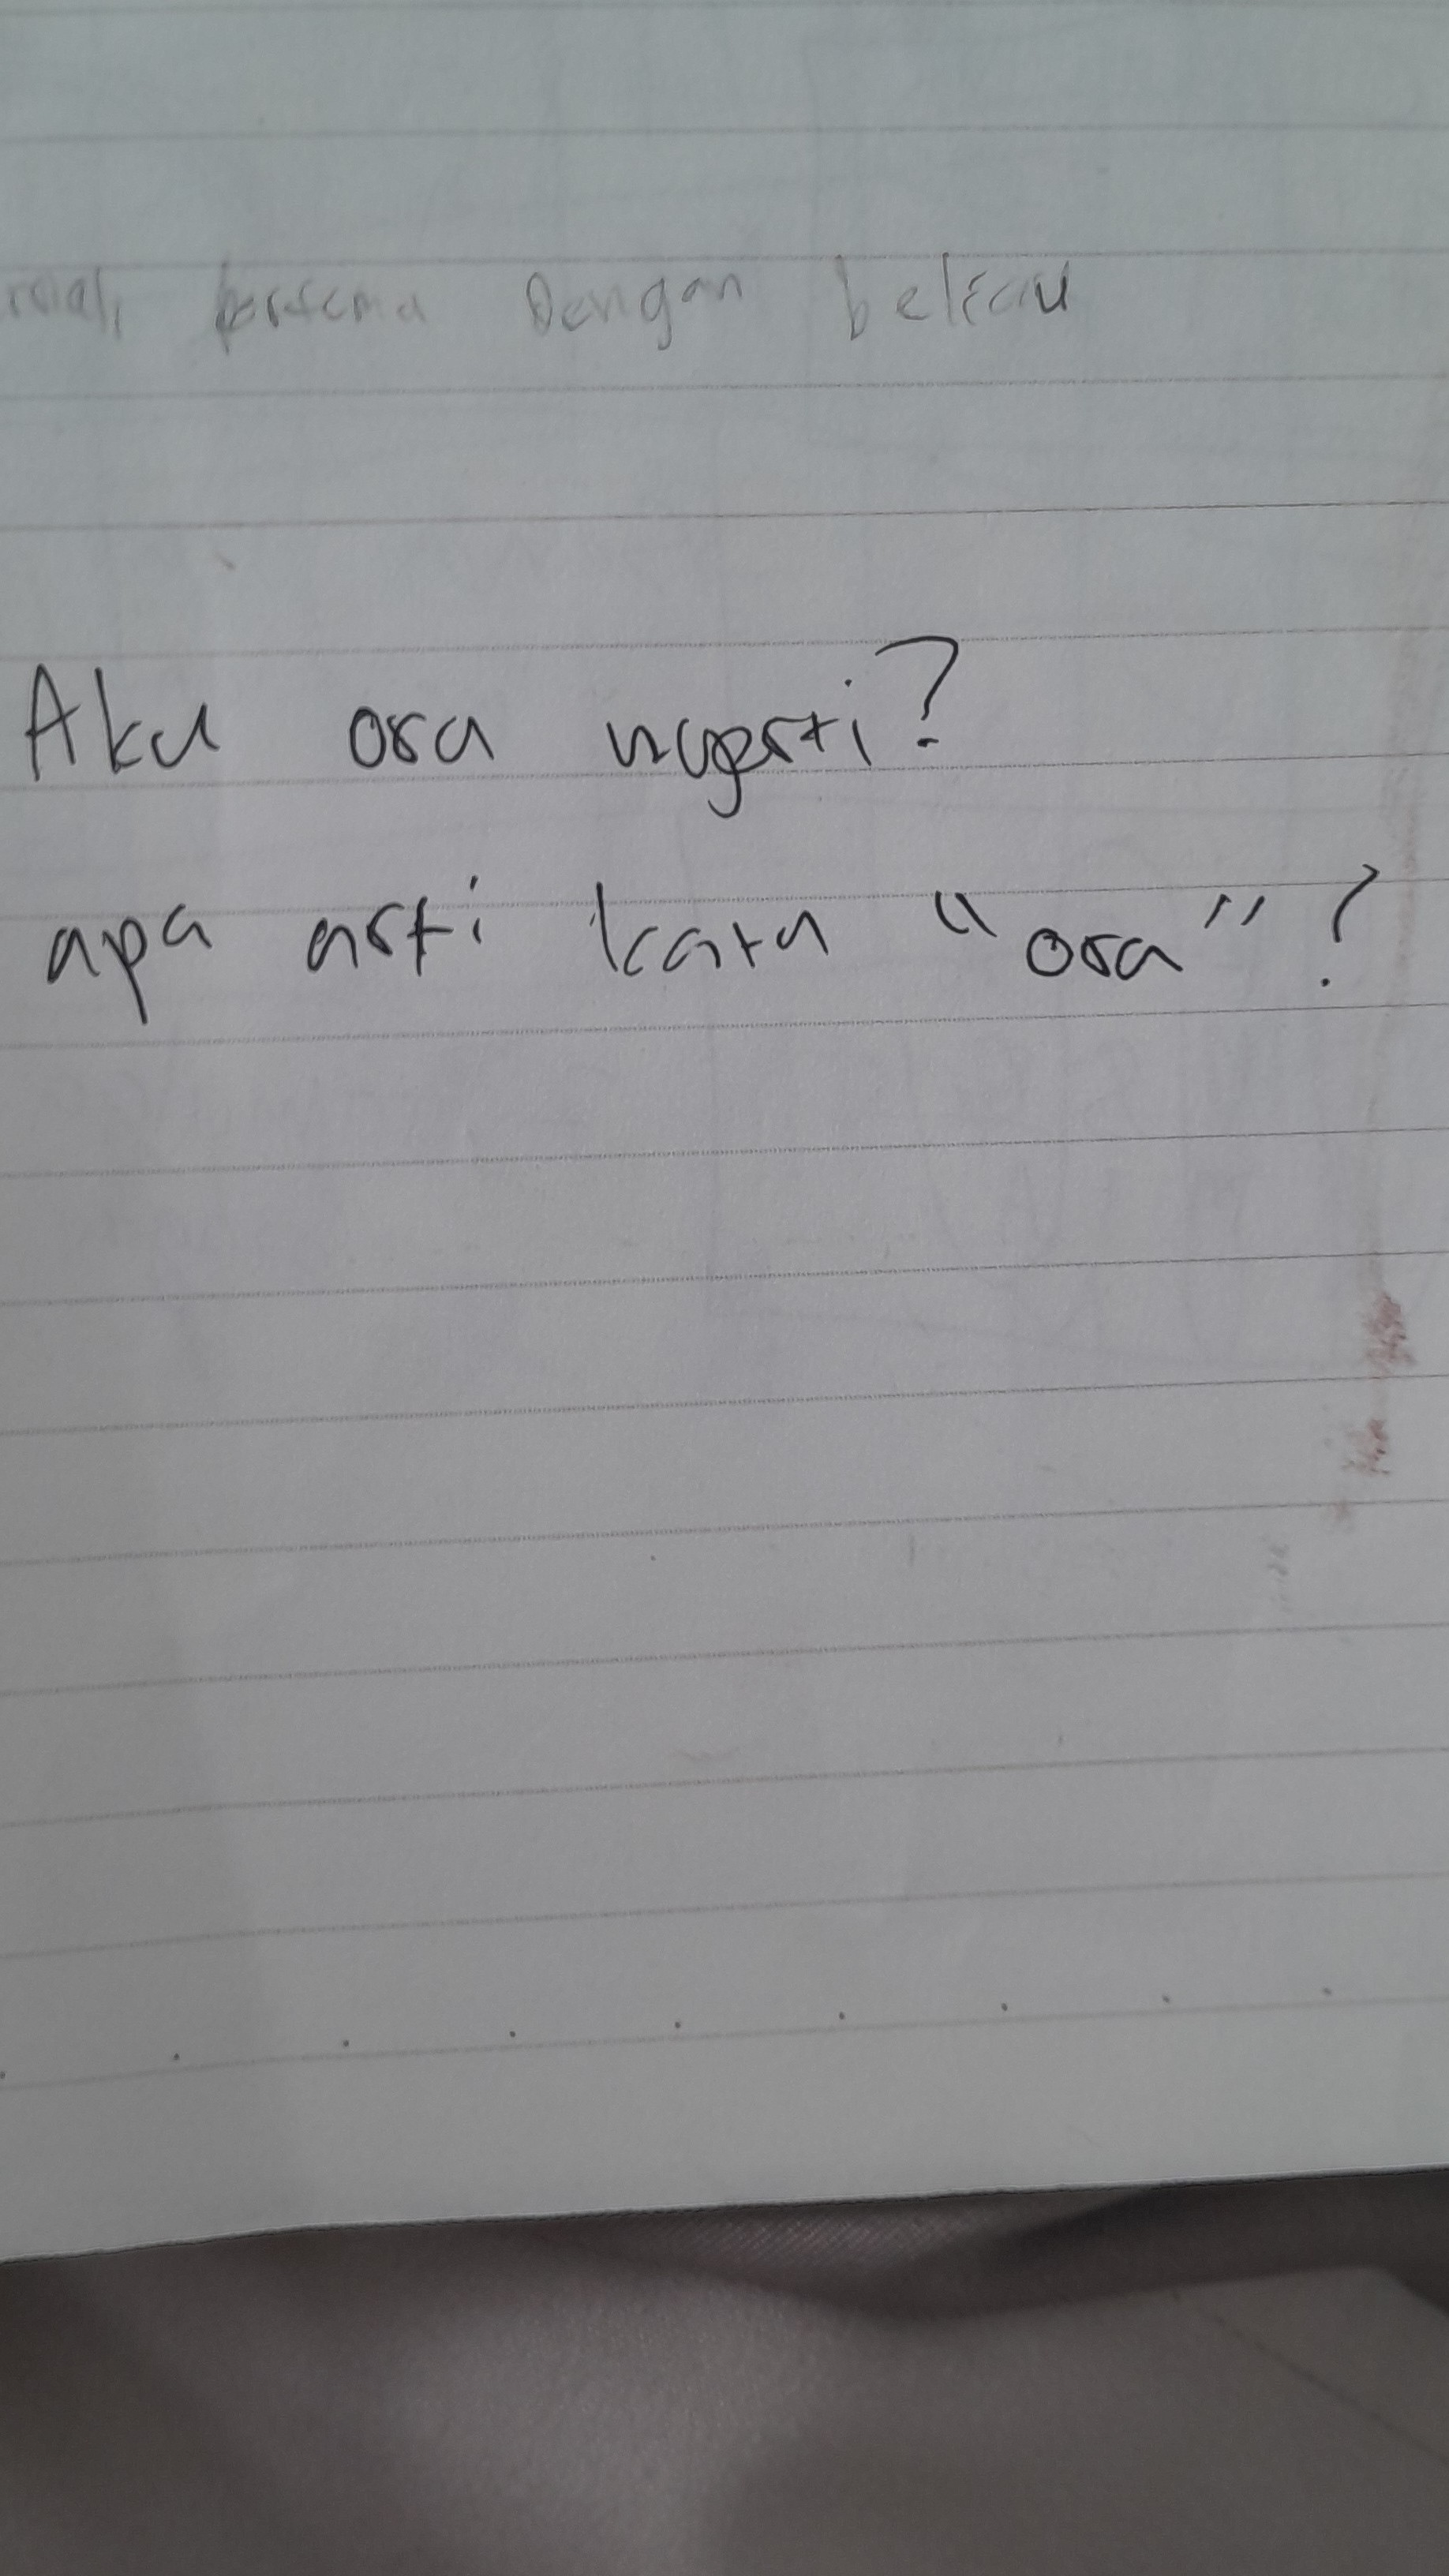 Dengan beliau
Aku ora ngerti?
apa arti kata "ora"?